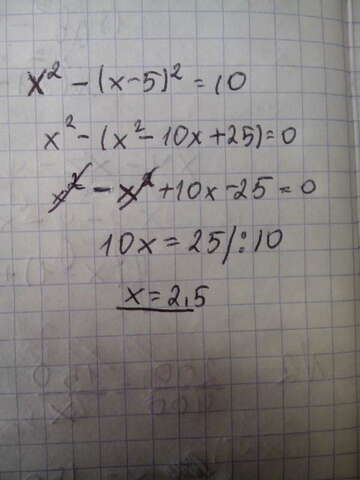 x² - (x-5)² = 10
x² - (x² - 10x + 25) = 0
x² - x² + 10x - 25 = 0
10x = 25 /: 10
x = 2,5